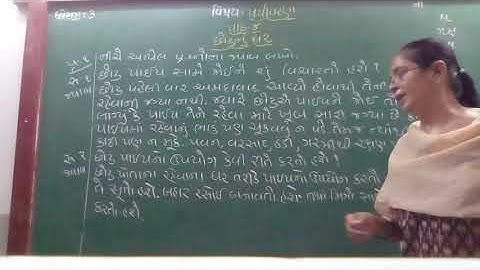 ધોરણ:- 3 વિષય:- પર્યાવરણ તા
પાઠ-૪
છોટુનું ઘર
નીચે આપેલ પ્રશ્નોના જવાબ લખો.
પ્ર.૧ છોટુ પાઇપ સામે જોઈને શું વિચારતો હશે?
જવાબ છોટુ પહેલી વાર અમદાવાદ આવ્યો હોવાથી તેની
રહેવાની જગ્યા નથી. જ્યારે છોટુએ પાઇપને જોઈ
લાગ્યું કે પાઇપ તેને રહેવા માટે ખૂબ સારી જગ્યા છે
પાઇપમાં રહેવાનું ભાડું પણ ચૂકવવું ન પડે તેમજ ત્યાંથી
કાઢી પણ ન મુકે. પવન, વરસાદ, ઠંડી, ગરમીથી રક્ષણ
પ્ર.૨ છોટુ પાઇપનો ઉપયોગ કેવી રીતે કરતો હશે?
જવાબ છોટુ પોતાના રહેવાના ઘર તરીકે પાઇપનો ઉપયોગ કરતો
તે સૂતો હશે. બહાર રસોઈ બનાવતો હશે તથા મિત્રો સાથે
કરતો હશે.